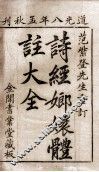 道光八年五秋刊
范紫登先生重訂
詩經嫏嬛體
註大全
金閶書業堂藏板